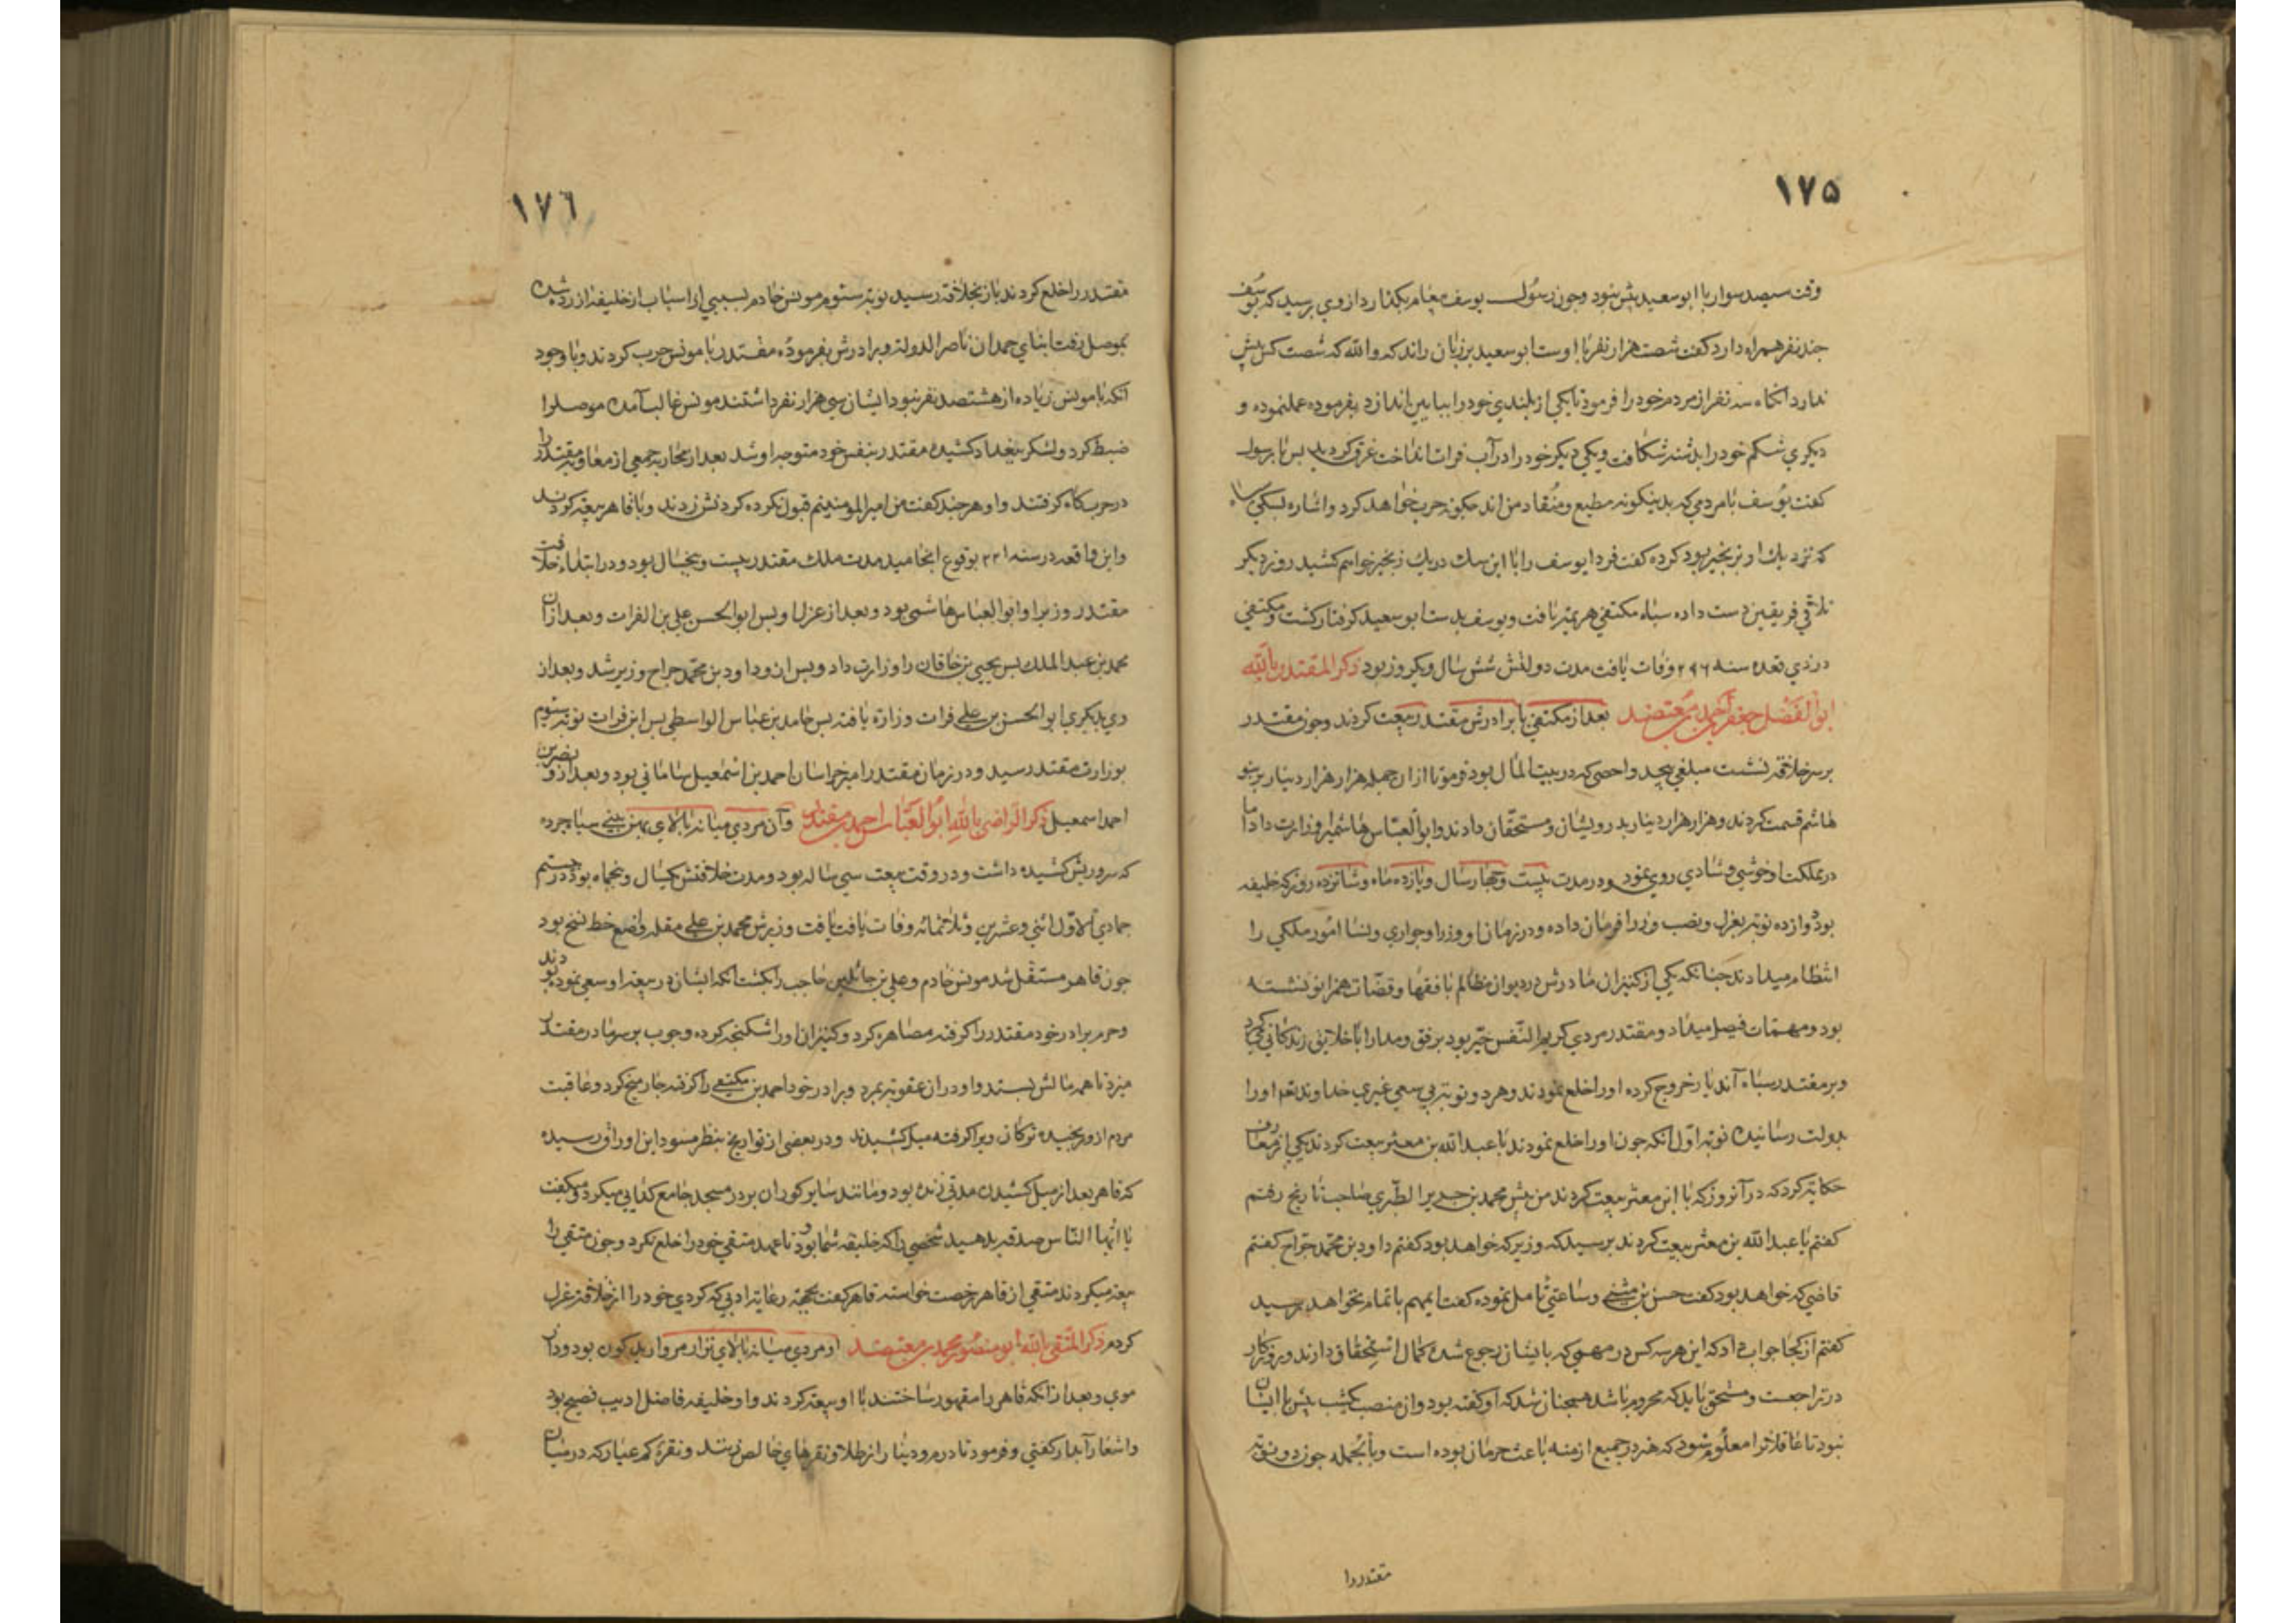 ۱۷۵
وقت سیصد سوار با ابو سعید پیش نبود وجون رسول یوسف پیغام بکذارد از وی پرسید که یوسف
جند نفر همراه دارد کفت شصت هزار نفر با اوست ابو سعید بر زبان راند که والله که شصت کس پیش
ندارد انکاه سه نفر از مردم خود را فرمود تا یکی از بلندی خود را بپایین اندازد بفرموده عمل نموده و
دیکری شکم خود را بدشنه شکافت ویکی دیکر خود را در آب فرات انداخت غرق کردید پس با رسول
کفت یوسف با مردمی که بدینکونه مطیع ومنقاد من اند جکونه حرب خواهد کرد واشاره بسکی سیاه
که نزدیک او بزنجیر بود کرده کفت فردا یوسف را با این سک در یک زنجیر خواهم کشید روز دیکر
تلاقی فریقین دست داده سپاه مکتفی هزیمة یافت ویوسف بدست ابو سعید کرفتار کشت ومکتفی
در ذی قعده سنه ۲۹۶ وفات یافت مدت دولتش شش سال ویکروز بود ذکر المقتدر بالله
ابو الفضل جعفر احمد بن معتضد بعد از مکتفی با برادرش مقتدر بیعت کردند وجون مقتدر
بر سر خلافة نشست مبلغی بیحد واحصی که در بیت المال بود فرمود تا از ان جمله هزار هزار دینار بر بنو
هاشم قسمت کردند وهزار هزار دینار بدرویشان ومستحقان دادند وابو العباس هاشمیرا وزارت داد اما
در مملکت او خوشی وشادی روی نمود ودر مدت بیست وجهار سال ویازده ماه وشانزده روز که خلیفه
بود دوازده نوبة بعزل ونصب وزرا فرمان داده ودر زمان او وزرا وجواری ونسا امور ملکی را
انتظام میدادند جنانکه یکی از کنیزان مادرش در دیوان مظالم با فقها وقضات همزانو نشسته
بود ومهمات فیصل میداد ومقتدر مردی کریم النفس خیر بود برفق ومدارا با خلایق زندکانی میکرد
وبر مقتدر سپاه آند بار خروج کرده او را خلع نمودند وهر دو نوبة بی سعی غیری خداوند تع او را
بدولت رسانید نوبة اول انکه جون او را خلع نمودند با عبد الله بن معتز بیعت کردند یکی از معارف
حکایة کرد که در آنروز که با ابن معتز بیعت کردند من پیش محمد بن جریر الطبری صاحب تاریخ رفتم
کفتم با عبد الله بن معتز بیعت کردند پرسید که وزیر که خواهد بود کفتم داود بن محمد جراح کفتم
قاضی که خواهد بود کفت حسن بن مثنی وساعتی تامل نموده کفت ایمهم باتمام نخواهد رسید
کفتم از کجا جواب داد که این هر سه کس در مهمی که بایشان رجوع شده کمال استحقاق دارند وروزکار
در تراجعست ومستحق باید که محروم باشد همجنان شد که او کفته بود وان منصب یکشب پیش با ایشان
نبود تا عاقلانرا معلوم شود که هنر در جمیع ازمنه باعث حرمان بوده است وبالجمله جون دو نوبة
مقتدر را
۱۷۶
مقتدر را خلع کردند باز بخلافة رسید نوبة سیوم مونس خادم بسببی از اسباب از خلیفه ازرده شده
بموصل رفت ابنای حمدان ناصر الدوله وبرادرش بفرموده مقتدر با مونس حرب کردند وبا وجود
انکه با مونس زیاده از هشتصد نفر نبود وایشان سی هزار نفر داشتند مونس غالب آمده موصل را
ضبط کرد ولشکر ببغداد کشیده مقتدر بنفس خود متوجه او شد بعد از محاربه جمعی از مغاربه مقتدر را
در حربکاه کرفتند واو هر جند کفت من امیر المومنینم قبول نکرده کردنش زدند وبا قاهر بیعة کردند
واین واقعه در سنه ۳۲۱ بوقوع انجامید مدت ملک مقتدر بیست وپنجسال بود ودر ابتداء خلافت
مقتدر وزیر او ابو العباس هاشمی بود وبعد از عزل او پس ابو الحسن علی بن الفرات وبعد از ان
محمد بن عبد الملک پس یحیی بن خاقان را وزارت داد وپس از و داود بن محمد جراح وزیر شد وبعد از
وی بدیکری ابو الحسن بن علی فرات وزارة یافته پس حامد بن عباس الواسطی پس ابن فرات نوبة سیوم
بوزارت مقتدر رسید ودر زمان مقتدر امیر خراسان احمد بن اسمعیل سامانی بود وبعد از و نصر بن
احمد اسمعیل ذکر الراضی بالله ابو العباس احمد بن مقتدر وآن مردی میانه بالای پهن بینی سیاجرده
که سر وریش کشیده داشت ودر وقت بیعت سی ساله بود ومدت خلافتش یکسال وپنجماه بود در بیستم
جمادی الاول اثنی وعشرین وثلاثمائه وفات یافت یافت وزیرش محمد بن علی مقله واضع خط نسخ بود
جون قاهر مستقل شد مونس خادم وعلی بن حاجب را بکشت انکه ایشان در بیعة او سعی نموده بودند
وحرم برادر خود مقتدر را کرفته مصاهره کرد وکنیزان او را شکنجه کرده وجوب بر سر مادر مقتدر
میزد تا همه مالش بستد واو در ان عقوبة بمرد وبرادر خود احمد بن مکتفی را کرفته جار میخ کرد وعاقبت
مردم ازو رنجیده ترکان ویرا کرفته میل کشیدند ودر بعضی از تواریخ بنظر مسود این اوراق رسیده
که قاهر بعد از میل کشیدن مدتی زنده بود ومانند سایر کوران بر در مسجد جامع کدایی میکرد ومیکفت
یا ایها الناس صدقه بدهید شخصی را که خلیفه شما بود تا عهد متقی خود را خلع نکرد وجون متقی را
بیعة میکردند متقی از قاهر رخصت خواسته قاهر کفت بجهة رعایة ادبی که کردی خود را از خلافة عزل
کردم ذکر المتقی بالله ابو منصور محمد بن معتضد او مردی میانه بالای نزار مروارید کون بود ودان
موی وبعد از انکه قاهر را مقهور ساختند با او بیعة کردند واو خلیفه فاضل ادیب فصیح بود
واشعار آبدار کفتی وفرمود تا درم ودینار از طلا ونقرهای خالص زنند ونقره کم عیار که در میان